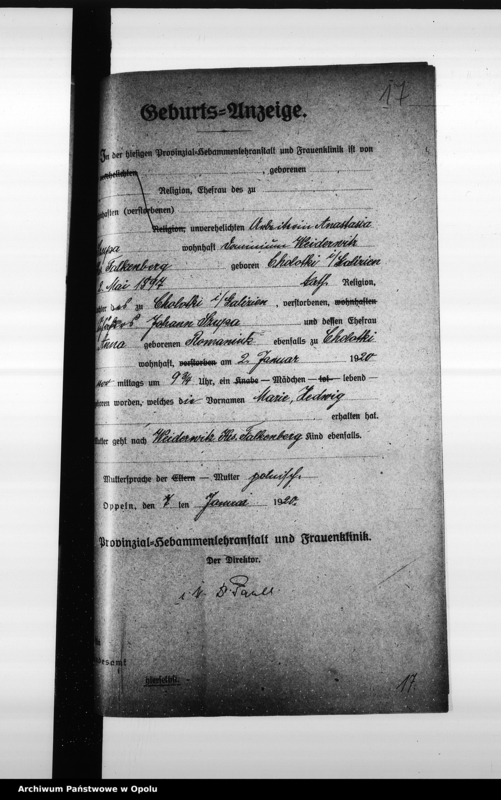 17
Geburts-Anzeige.
In der hiesigen Provinzial-Hebammenlehranstalt und Frauenklinik ist von
verehelichten geborenen
Religion, Ehefrau des zu
haften (verstorbenen)
Religion, unverehelichten Arbeiterin Anastasia
wohnhaft Dominium Weiderwitz
Falkenberg geboren Cholotki i/Galizien
Mai 1897 kath. Religion,
zu Cholotki i/Galizien, verstorbenen, wohnhaften
Johann und dessen Ehefrau
Anna geborenen ebenfalls zu Cholotki
wohnhaft, verstorben am 2. Januar 1920
mittags um 9 3/4 Uhr, ein Knabe — Mädchen — tot — lebend —
boren worden, welches die Vornamen Marie, Hedwig
erhalten hat.
Mutter geht nach Weiderwitz Krs. Falkenberg Kind ebenfalls.
Muttersprache der Eltern — Mutter polnisch.
Oppeln, den 7 ten Januar 1920.
Provinzial-Hebammenlehranstalt und Frauenklinik.
Der Direktor.
i. V. D.
desamt
hierselbst.
17.
Archiwum Państwowe w Opolu